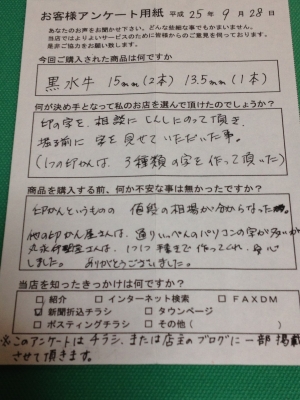 お客様アンケート用紙 平成25年9月28日
あなたのお声をお聞かせ下さい。どんな些細な事でもかまいません。
当店ではよりよいサービスのために皆様からのご意見を伺っております。
是非ご協力をお願い致します。
今回ご購入された商品は何ですか
黒水牛 15mm(2本) 13.5mm(1本)
何が決め手となって私のお店を選んで頂けたのでしょうか?
印の字を、相談にしんしんにのって頂き、
掘る前に字を見せていただいた事。
(1つの印かんは、3種類の字を作って頂いた)
商品を購入する前、何か不安な事は無かったですか?
印かんというものの 値段の相場が分からなった
他の印かん屋さんは、通りいっぺんのパソコンの字が多いが
さんは、1つ1つ手まで作ってくれ、安心
しました。 ありがとうございました。
当店を知ったきっかけは何ですか?
□紹介 □インターネット検索 □FAXDM
☑新聞折込チラシ □タウンページ
□ポスティングチラシ □その他( )
※このアンケートはチラシ、または店主のブログに一部掲載
させて頂きます。